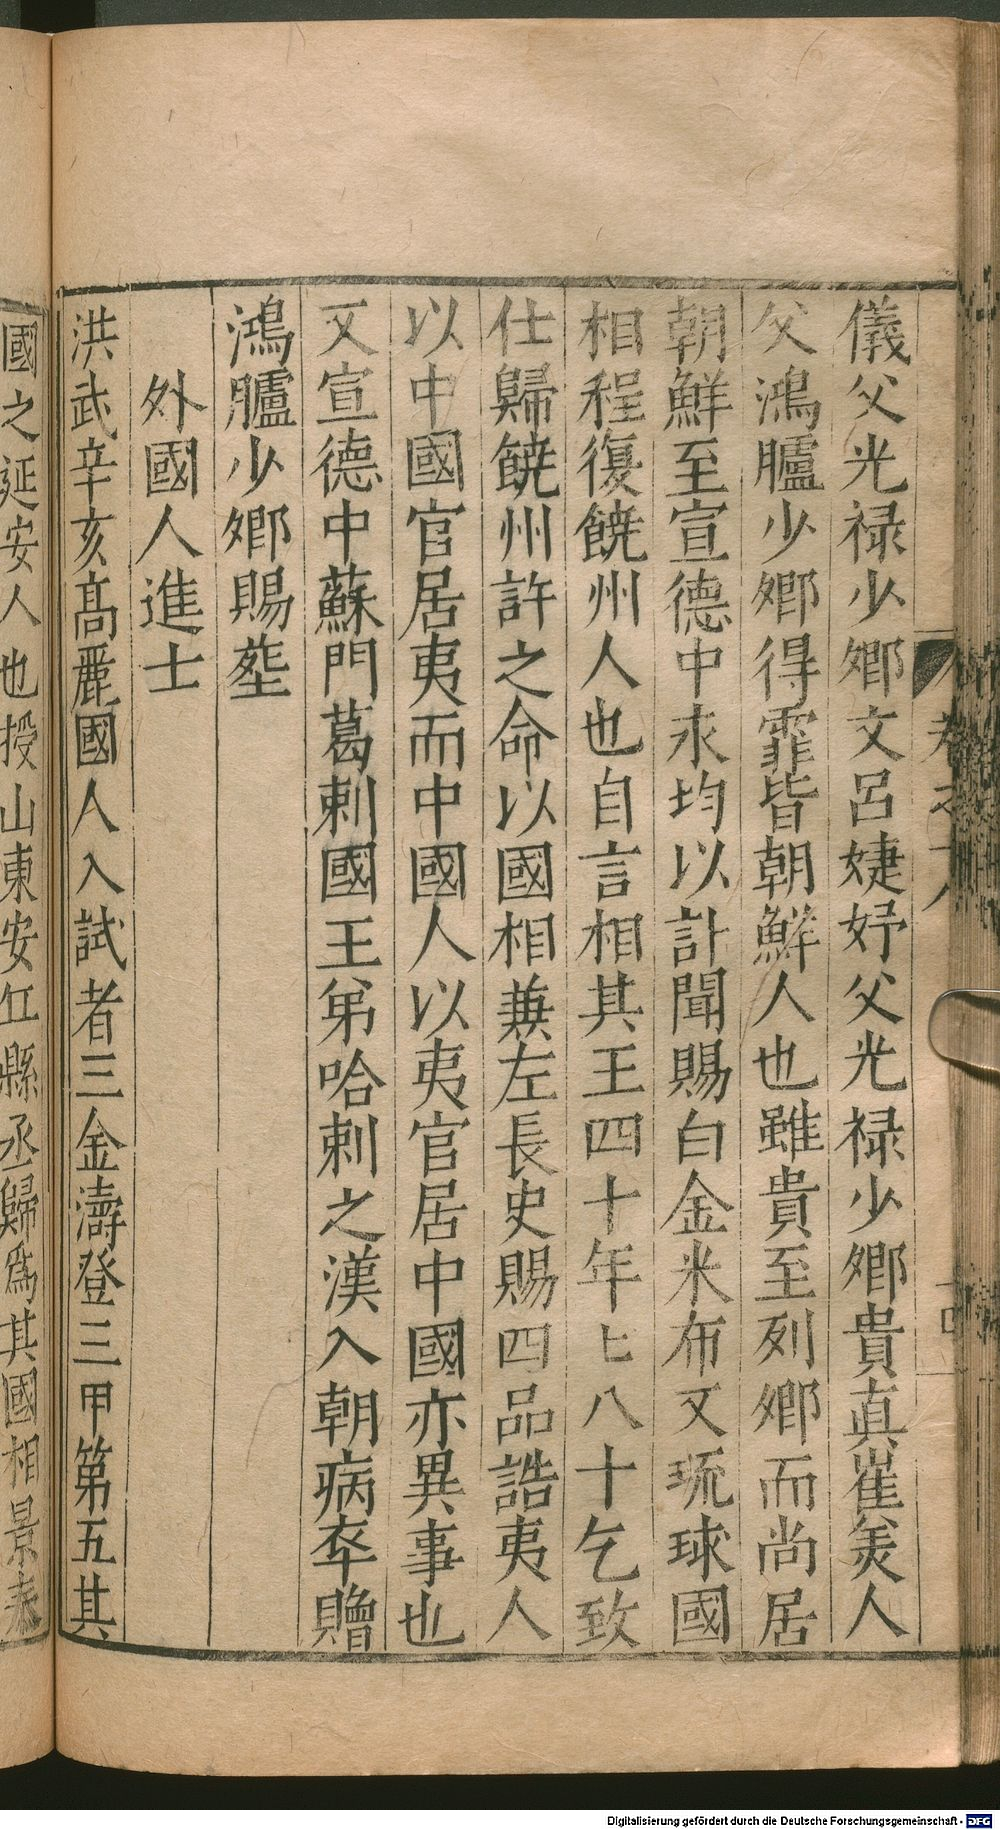 儀父光禄少卿文呂婕妤父光禄少卿貴真崔美人
父鴻臚少卿得霏皆朝鮮人也雖貴至列卿而尚居
朝鮮至宣德中永均以訃聞賜白金米布又琉球國
相程復饒州人也自言相其王四十年七八十乞致
仕歸饒州許之命以國相兼左長史賜四品誥夷人
以中國官居夷而中國人以夷官居中國亦異事也
又宣德中蘇門荅剌國王弟哈剌之漢入朝病卒贈
鴻臚少卿賜塟
外國人進士
洪武辛亥髙麗國人入試者三金濤登三甲第五其
國之延安人也授山東安丘縣丞歸爲其國相景泰
卷之十八
十四
Digitalisierung gefördert durch die Deutsche Forschungsgemeinschaft - DFG